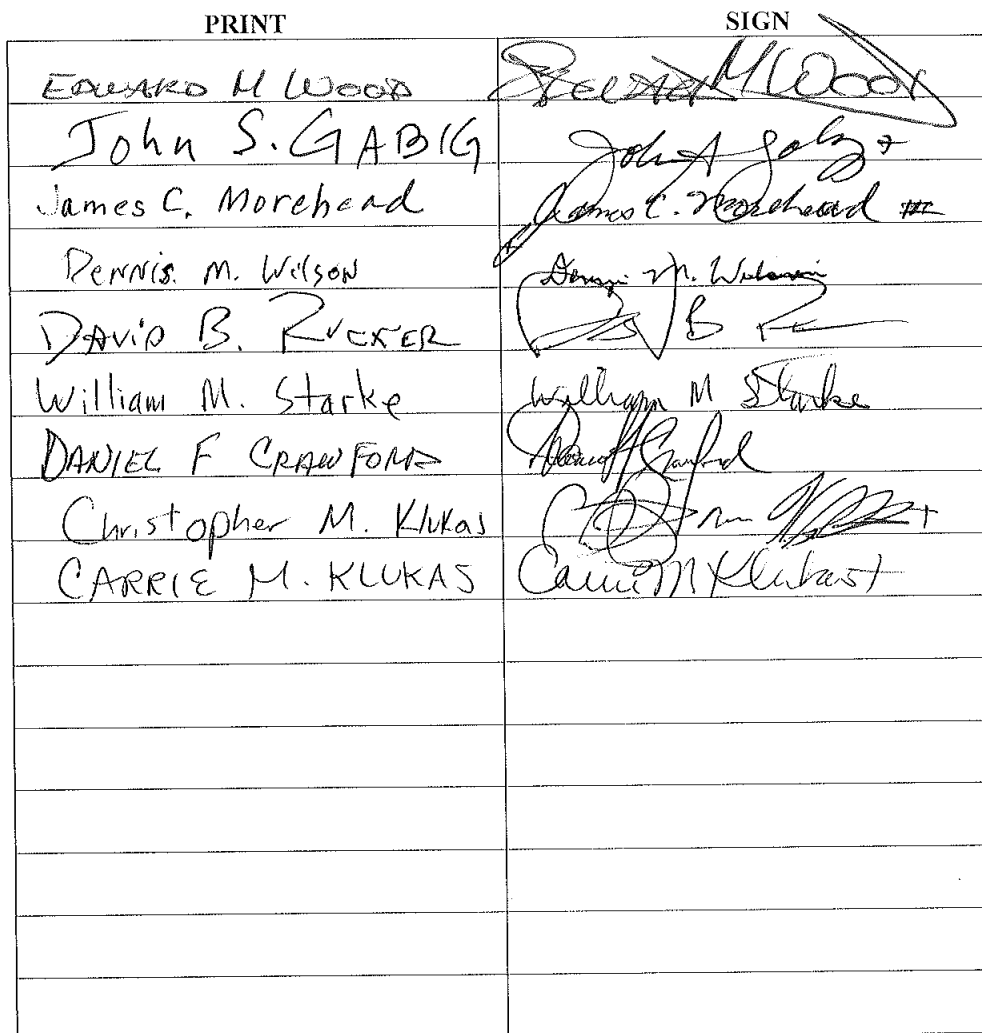 PRINT SIGN
EDWARD M WOOD Edward M Wood
John S. GABIG John S Gabig
James C. Morehead James C. Morehead III
Dennis. M. Wilson Dennis M. Wilson
DAVID B. RUCKER B
William M. Starke William M Starke
DANIEL F CRAWFORD Daniel F Crawford
Christopher M. Klukas
CARRIE M. KLUKAS Carrie M Klukas